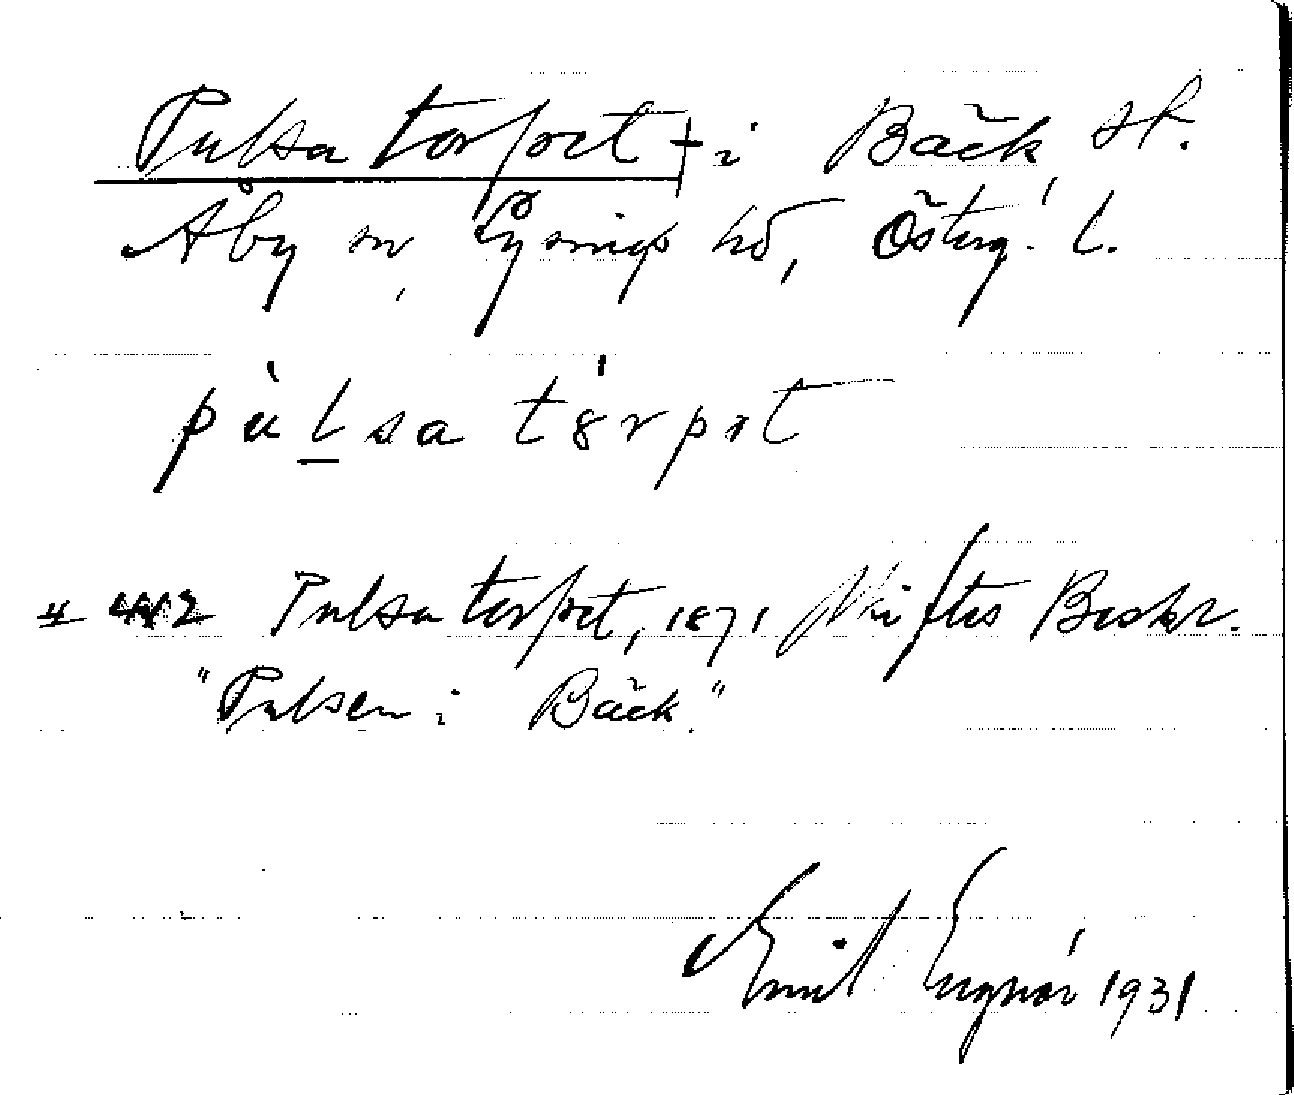 Pulsatorpet + i Bäck st.
Åby sn, Lysings hd, Österg. l.
pùlsatórpət
# 442 Pulsatorpet, 1871 Skiftes Beskr.
"Pulsen i Bäck."
Emil 1931